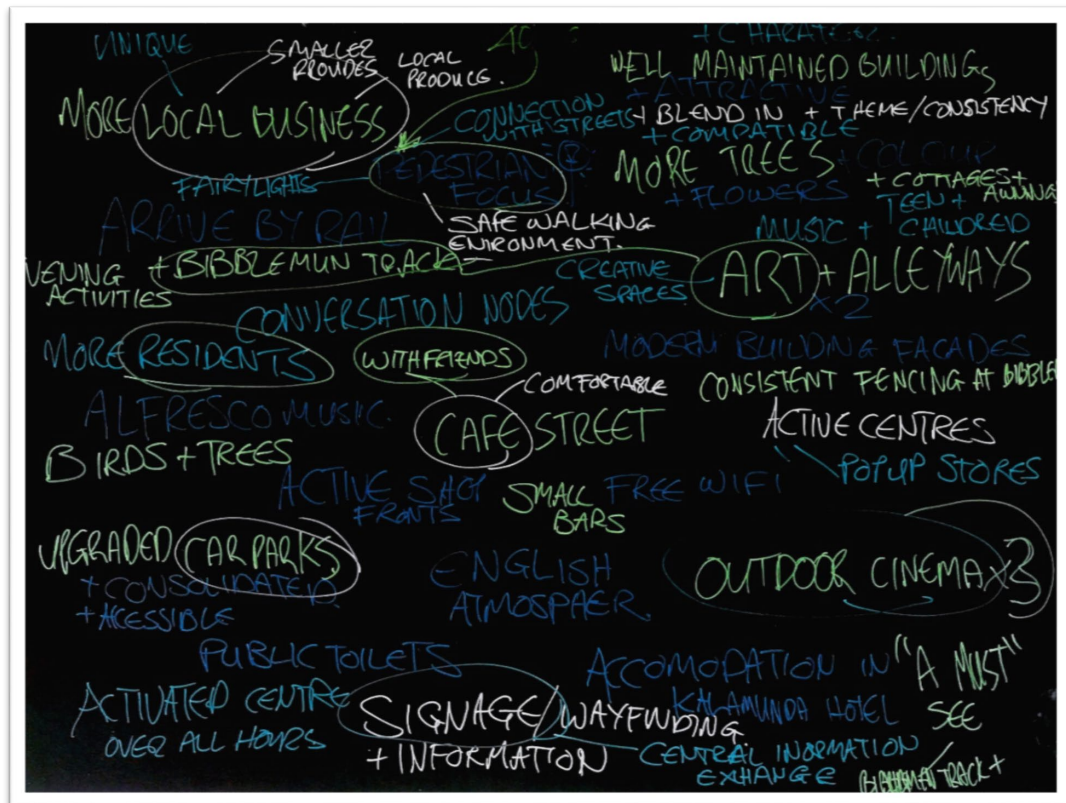 UNIQUE
SMALLER
PROVIDES
LOCAL
PRODUCE.
+ CHARATER.
WELL MAINTAINED BUILDINGS
+ ATTRACTIVE
+ BLEND IN + THEME/CONSISTENCY
+ COMPATIBLE
MORE LOCAL BUSINESS
CONNECTION
WITH STREETS
PEDESTRIAN
FOCUS
MORE TREES + COLOUR
+ FLOWERS
+ COTTAGES +
AWNING
FAIRYLIGHTS
TEEN +
MUSIC + CHILDREN
ARRIVE BY RAIL
SAFE WALKING
ENIRONMENT.
VENING
ACTIVITIES
+ BIBBLEMUN TRACK
CREATIVE
SPACES
ART + ALLEYWAYS
x2
CONVERSATION NODES
MORE RESIDENTS
WITH FRIENDS
MODERN BUILDING FACADES
COMFORTABLE
CONSISTENT FENCING AT BIBBLE
ALFRESCO MUSIC.
CAFE STREET
ACTIVE CENTRES
BIRDS + TREES
POPUP STORES
ACTIVE SHOP
FRONTS
SMALL
BARS
FREE WIFI
UPGRADED CAR PARKS
+ CONSOLIDATED
+ ACESSIBLE
ENGLISH
ATMOSPAER.
OUTDOOR CINEMA x3
PUBLIC TOILETS
ACCOMODATION IN
KALAMUNDA HOTEL
"A MUST"
SEE
ACTIVATED CENTRE
OVER ALL HOURS
SIGNAGE/WAYFINDING
+ INFORMATION
CENTRAL INORMATION
EXHANGE
TRACK +